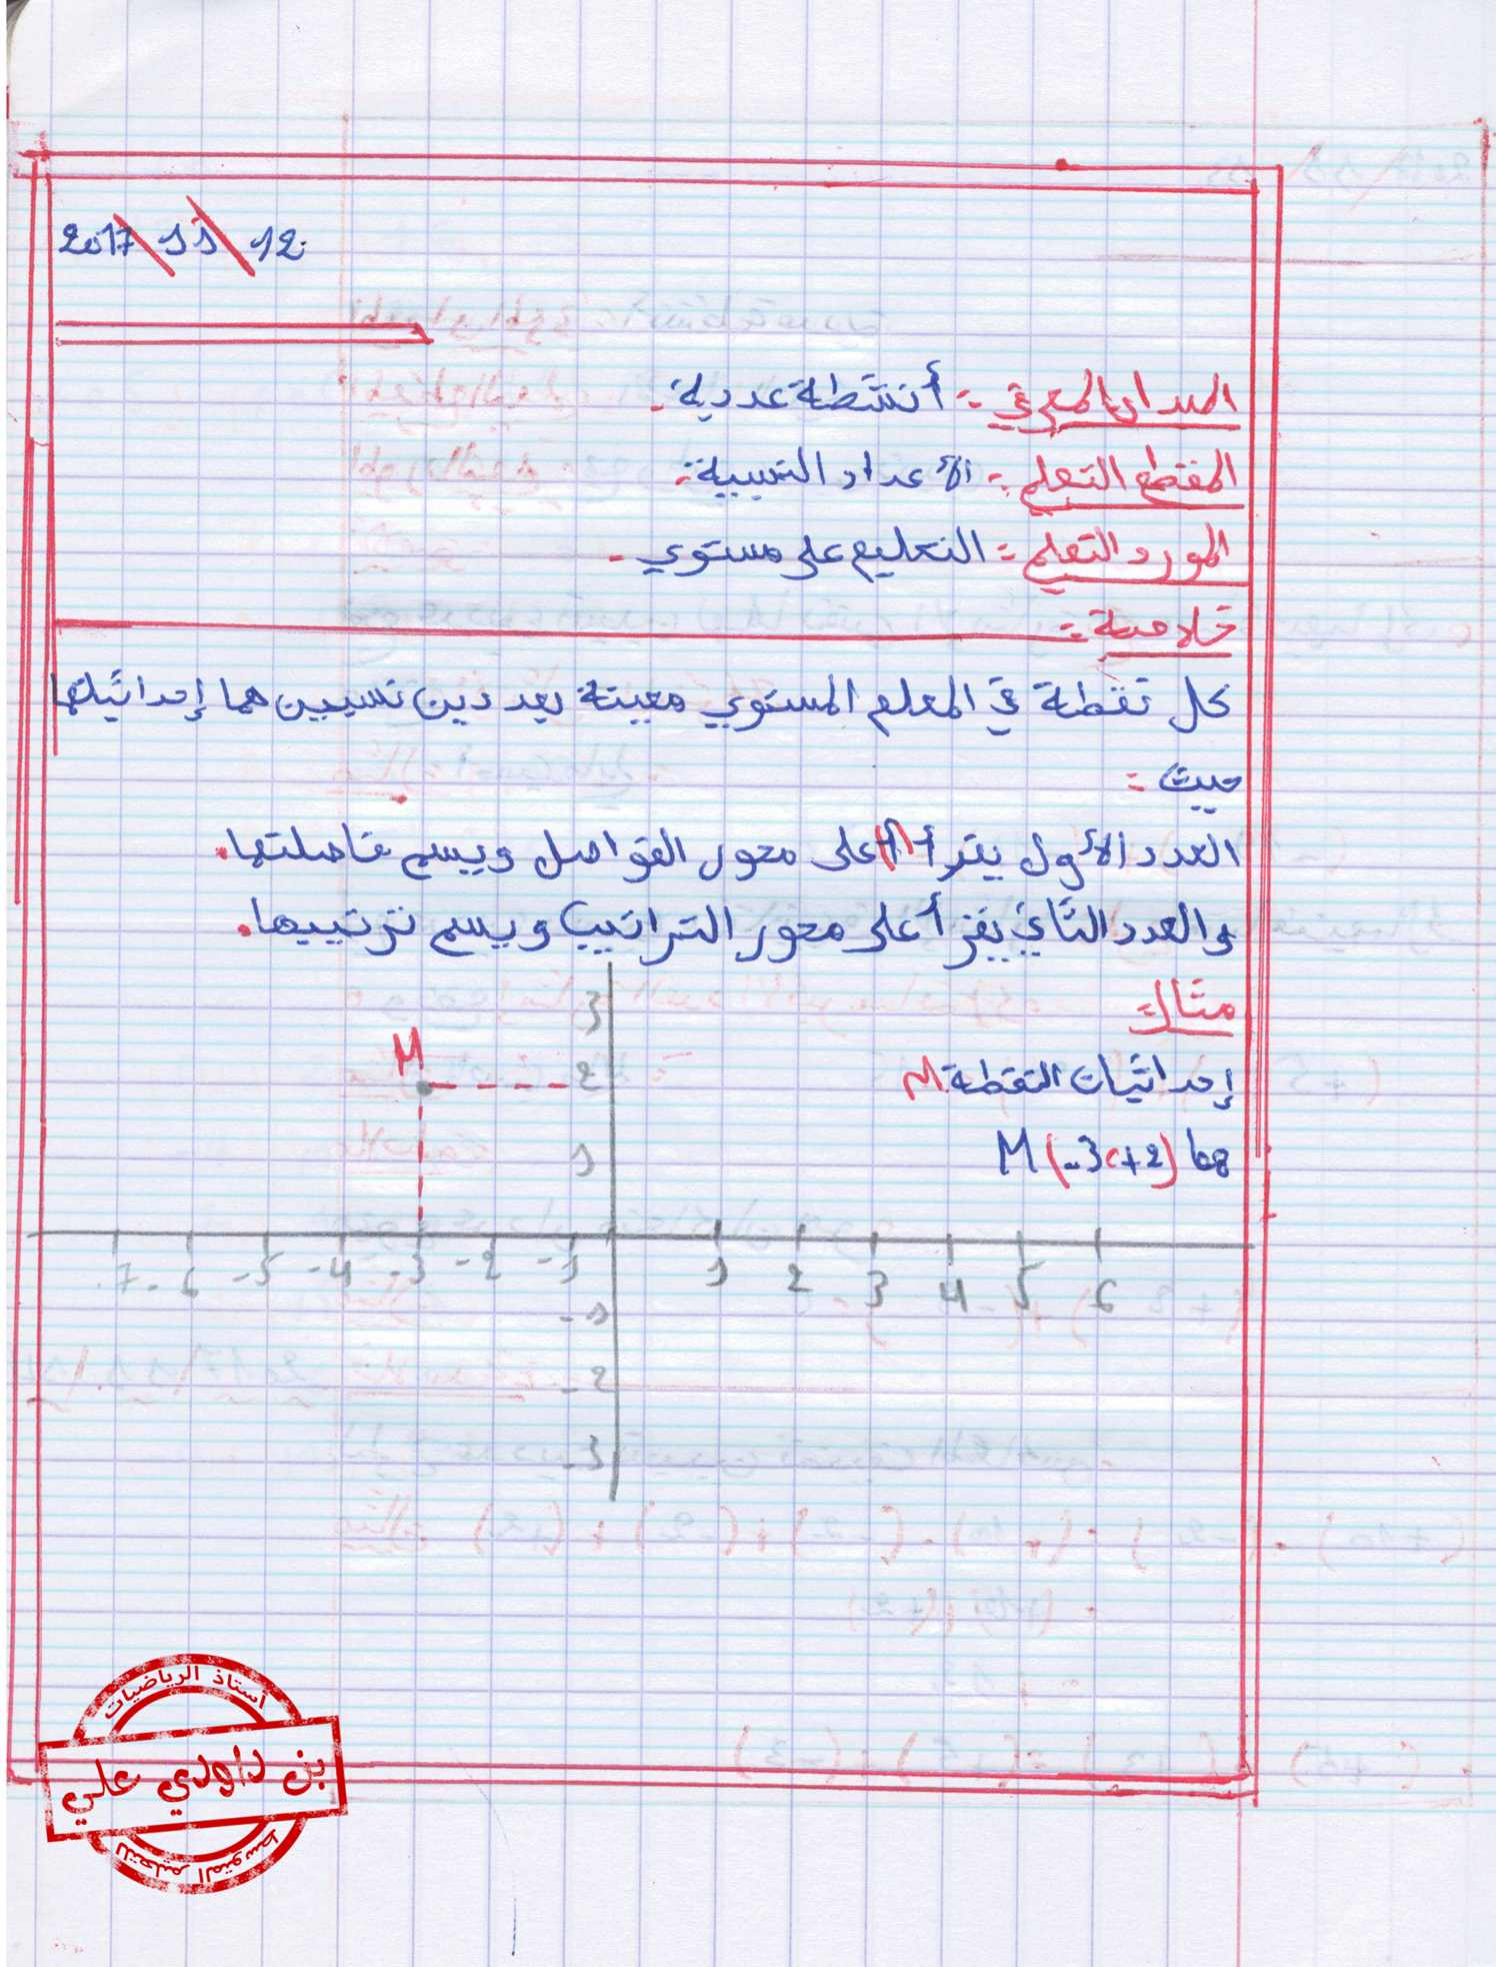 2017 \ 11 \ 12
الميدان المعرفي :- أنشطة عددية.
المقطع التعلمي :- الأعداد النسبية:
المورد التعلمي :- التعليم على مستوي -
خلاصة :-
كل نقطة في المعلم المستوي معينة بعددين نسبيين هما إحداثياتها
حيث :-
العدد الأول يقرأ على محور الفواصل ويسم فاصلتها.
والعدد الثاني يقرأ على محور التراتيب ويسم ترتيبها.
مثال:-
إحداثيات النقطة M
هما M (-3 ، +2)
M
3
2
1
-7 -6 -5 -4 -3 -2 -1 1 2 3 4 5 6
-1
-2
-3
أستاذ الرياضيات
بن داودي علي
للتعليم المتوسط